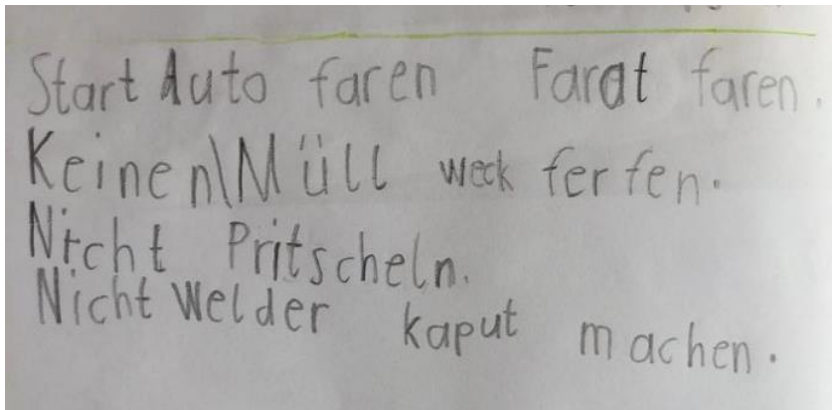 Start Auto faren Farat faren.
Keinen Müll weck ferfen.
Nicht Pritscheln.
Nicht Welder kaput machen.